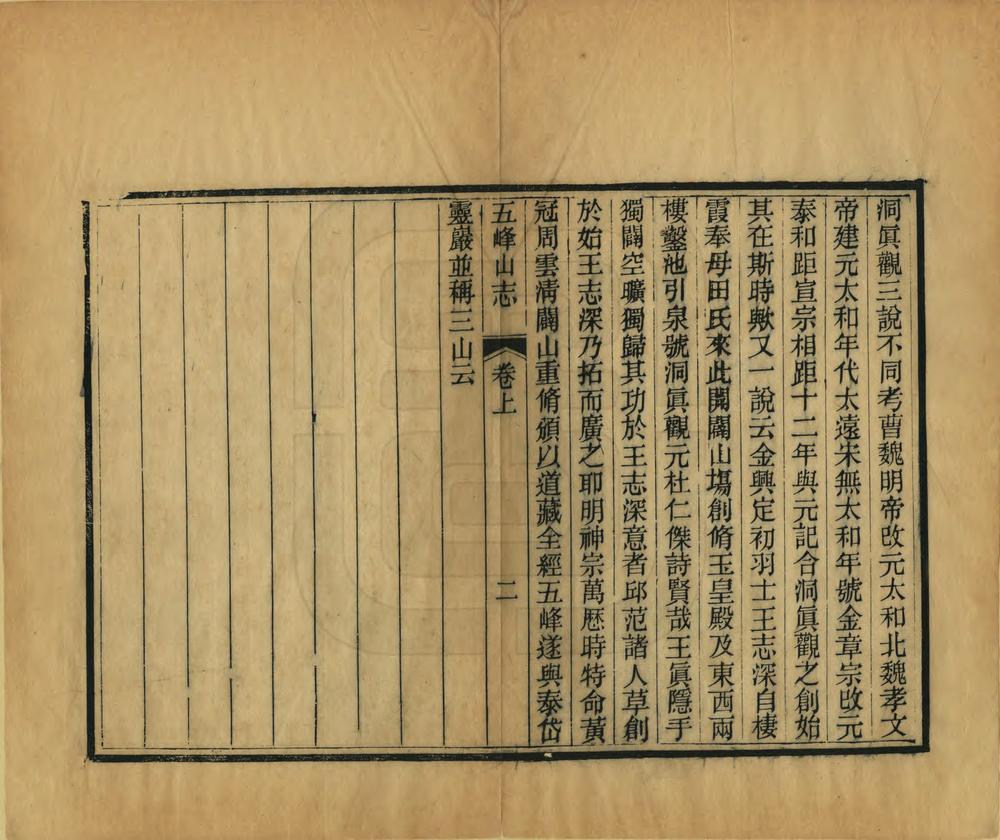 洞眞觀三說不同考曹魏明帝改元太和北魏孝文
帝建元太和年代太遠宋無太和年號金章宗改元
泰和距宣宗相距十二年與元記合洞眞觀之創始
其在斯時歟又一說云金興定初羽士王志深自棲
霞奉母田氏來此開闢山塲創脩玉皇殿及東西兩
樓鑿池引泉號洞眞觀元杜仁傑詩賢哉王眞隱手
獨闢空曠獨歸其功於王志深意者邱范諸人草創
於始王志深乃拓而廣之耶明神宗萬厯時特命黃
冠周雲淸闢山重脩頒以道藏全經五峰遂與泰岱
五峰山志 卷上 二
靈巖並稱三山云